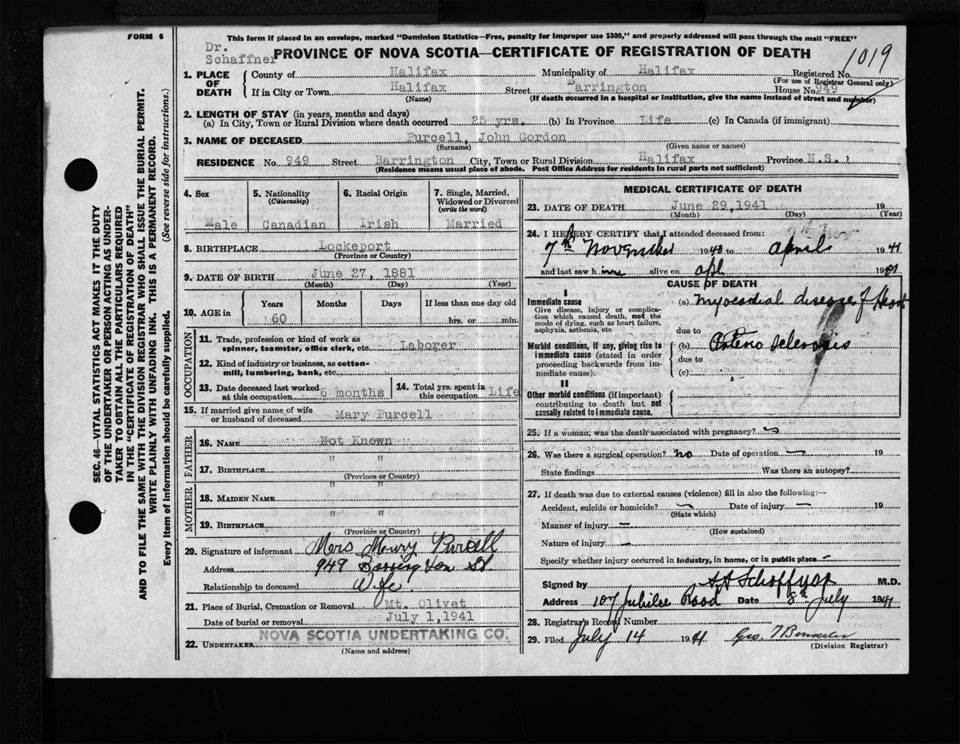 FORM 6
This form if placed in an envelope, marked "Dominion Statistics—Free, penalty for improper use $300," and properly addressed will pass through the mail "FREE"
Dr.
Schaffner
PROVINCE OF NOVA SCOTIA—CERTIFICATE OF REGISTRATION OF DEATH
1019
1. PLACE OF DEATH
County of Halifax Municipality of Halifax Registered No.
(For use of Registrar General only)
If in City or Town Halifax Street Barrington House No. 949
(Name) (If death occurred in a hospital or institution, give the name instead of street and number)
2. LENGTH OF STAY (in years, months and days)
(a) In City, Town or Rural Division where death occurred 25 yrs. (b) In Province Life (c) In Canada (if immigrant)
3. NAME OF DECEASED Purcell, John Gordon
(Surname) (Given name or names)
RESIDENCE No. 949 Street Barrington City, Town or Rural Division Halifax Province N.S.
(Residence means usual place of abode. Post Office Address for residents in rural parts not sufficient)
4. Sex Male
5. Nationality (Citizenship) Canadian
6. Racial Origin Irish
7. Single, Married, Widowed or Divorced (write the word) Married
8. BIRTHPLACE Lockeport
(Province or Country)
9. DATE OF BIRTH June 27, 1881
(Month) (Day) (Year)
10. AGE in Years 60 Months Days If less than one day old hrs. or min.
OCCUPATION
11. Trade, profession or kind of work as spinner, teamster, office clerk, etc. Laborer
12. Kind of industry or business, as cotton-mill, lumbering, bank, etc.
13. Date deceased last worked at this occupation 6 months
14. Total yrs. spent in this occupation Life
15. If married give name of wife or husband of deceased Mary Purcell
FATHER
16. NAME Not Known
17. BIRTHPLACE " "
(Province or Country)
MOTHER
18. MAIDEN NAME " "
19. BIRTHPLACE " "
(Province or Country)
20. Signature of informant Mrs Mary Purcell
Address 949 Barrington St.
Relationship to deceased Wife
21. Place of Burial, Cremation or Removal Mt. Olivet
Date of burial or removal July 1,1941
22. UNDERTAKER NOVA SCOTIA UNDERTAKING CO.
(Name and address)
MEDICAL CERTIFICATE OF DEATH
23. DATE OF DEATH June 29,1941 19
(Month) (Day) (Year)
24. I HEREBY CERTIFY that I attended deceased from:
7th November 1940 to April 1941
and last saw h im alive on apl 1941
CAUSE OF DEATH
I
Immediate cause
Give disease, injury or complication which caused death, not the mode of dying, such as heart failure, asphyxia, asthenia, etc
(a) Myocardial disease of Heart
due to
Morbid conditions, if any, giving rise to immediate cause (stated in order proceeding backwards from immediate cause).
(b) Arterio Sclerosis
due to
(c)
II
Other morbid conditions (if important) contributing to death but not causally related to immediate cause.
25. If a woman, was the death associated with pregnancy?
26. Was there a surgical operation? no Date of operation — 19
State findings Was there an autopsy?
27. If death was due to external causes (violence) fill in also the following:—
Accident, suicide or homicide? Date of injury — 19
(State which)
Manner of injury —
(How sustained)
Nature of injury —
Specify whether injury occurred in industry, in home, or in public place —
Signed by M.D.
Address 107 Jubilee Road Date 8th July 1941
28. Registrar's Record Number
29. Filed July 14 1941 Geo.
(Division Registrar)
SEC. 46—VITAL STATISTICS ACT MAKES IT THE DUTY
OF THE UNDERTAKER OR PERSON ACTING AS UNDER-
TAKER TO OBTAIN ALL THE PARTICULARS REQUIRED
IN THE "CERTIFICATE OF REGISTRATION OF DEATH"
AND TO FILE THE SAME WITH THE DIVISION REGISTRAR WHO SHALL ISSUE THE BURIAL PERMIT.
WRITE PLAINLY WITH UNFADING INK. THIS IS A PERMANENT RECORD.
Every item of information should be carefully supplied. (See reverse side for instructions.)